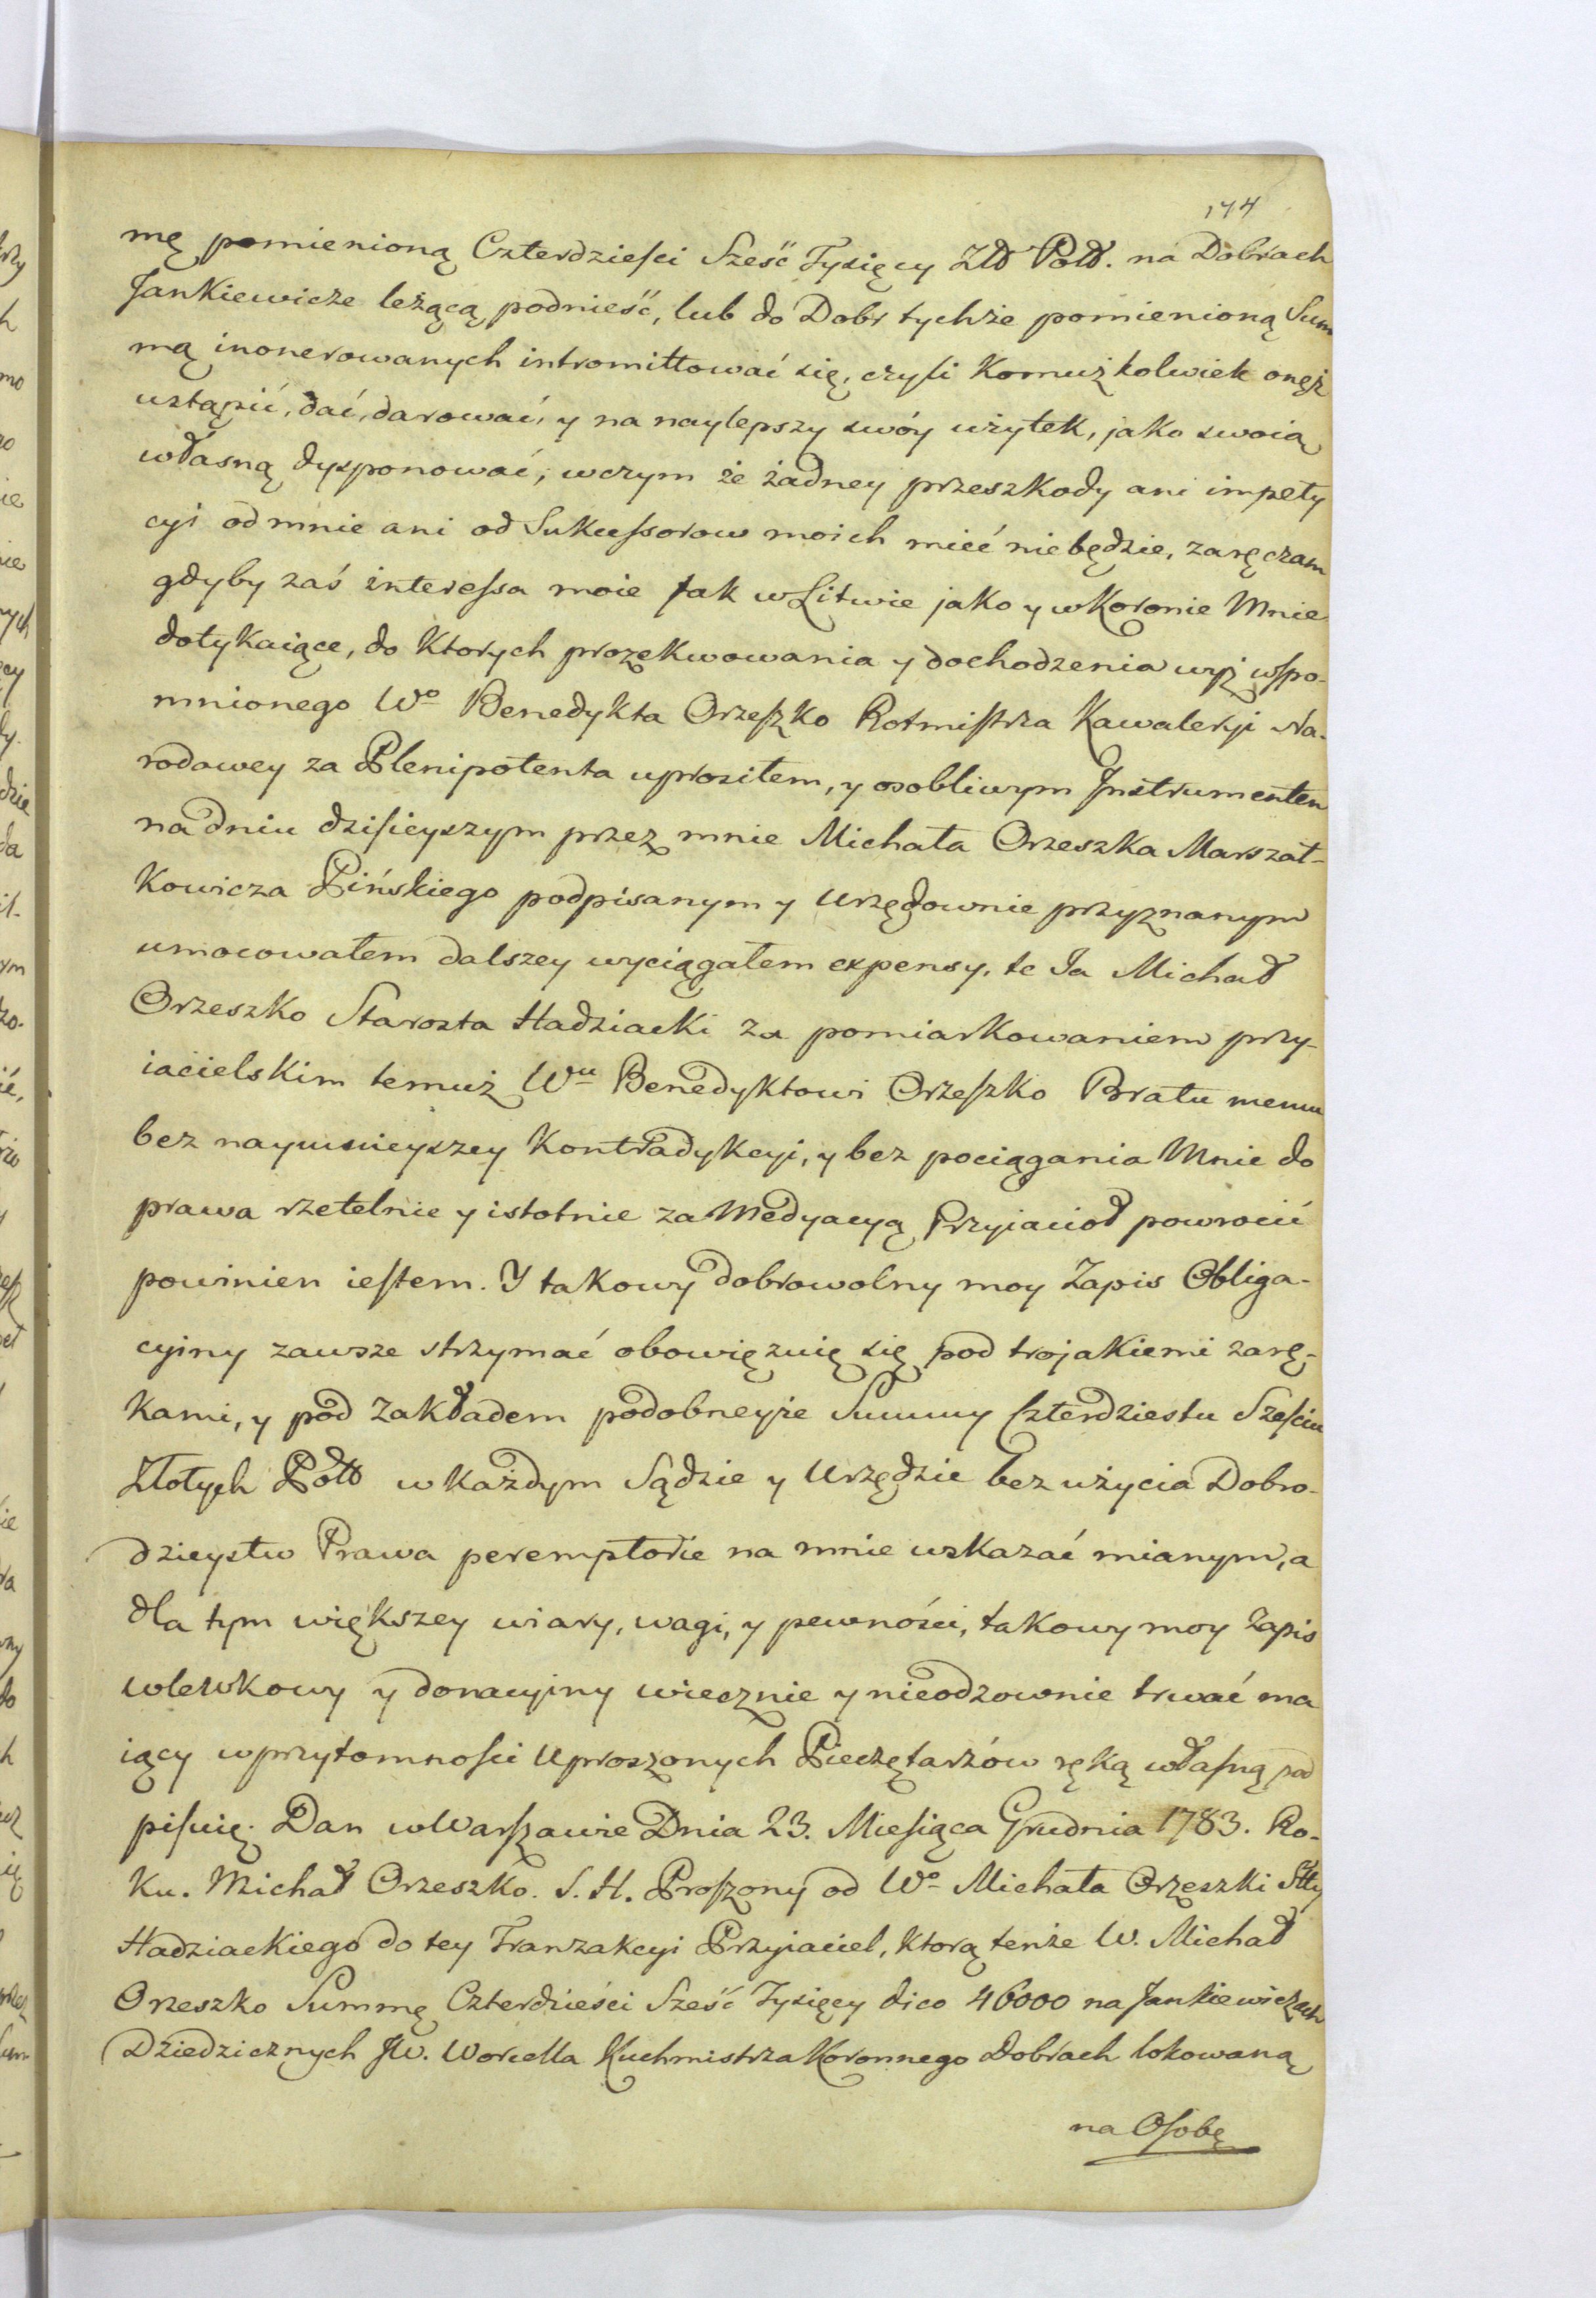 174
mę pomienioną Czterdzieści Sześć Tysięcy Złł Poll. na Dobrach
Jankiewicze leżącą podnieść, lub do Dobr tychże pomienioną Sum
mą inonerowanych intromittować się, czyli Komuż kolwiek onęż
ustąpić, dać, darować, y na naylepszy swóy użytek, jako swoią
własną dysponować, wczym że żadney przeszkody ani impety
cyi odmnie ani od Sukcessorow moich mieć niebędzie, zaręczam
gdyby zaś interessa moie tak w Litwie jako y w Koronie Mnie
dotykaiące, do Ktorych prozekwowania y dochodzenia wyż wspo-
mnionego Wo Benedykta Orzeszko Rotmistrza Kawaleryi Na-
rodowey za Plenipotenta uprosiłem, y osobliwym Instrumentem
na dniu dzisieyszym przez mnie Michała Orzeszka Marszał-
Kowicza Pińskiego podpisanym y Urzędownie przyznanym
umocowałem dalszey wyciągałem expensy, te Ja Michał
Orzeszko Starosta Hadziacki za pomiarkowaniem przy-
iacielskim temuż Wu Benedyktowi Orzeszko Bratu memu
bez naymnieyszey Kontradykcyi, y bez pociągania Mnie do
prawa rzetelnie y istotnie za Medyacyą Przyiacioł powrocić
powinien iestem. Y takowy dobrowolny moy Zapis Obliga-
cyiny zawsze strzymać obowięzuię się pod trojakiemi zarę-
kami, y pod Zakładem podobneyże Summy Czterdziestu Sześciu
Złotych Poll w każdym Sądzie y Urzędzie bez użycia Dobro-
dzieystw Prawa peremptorie na mnie wskazać mianym, a
dla tym większey wiary, wagi, y pewności, takowy moy Zapis
wlewkowy y donacyiny wiecznie y nieodzownie trwać ma
iący w przytomności Uproszonych Pieczętarzów ręką własną pod
pisuię. Dan w Warszawie Dnia 23. Miesiąca Grudnia 1783. Ro-
Ku. Michał Orzeszko. S. H. Proszony od Wo Michała Orzeszki Stty
Hadziackiego do tey Tranzakcyi Przyiaciel, Ktorą tenże W. Michał
Orzeszko Summę Czterdzieści Sześć Tysięcy dico 46000 na Jankiewiczach
Dziedzicznych JW. Worcella Kuchmistrza Koronnego Dobrach lokowaną
na Osobę